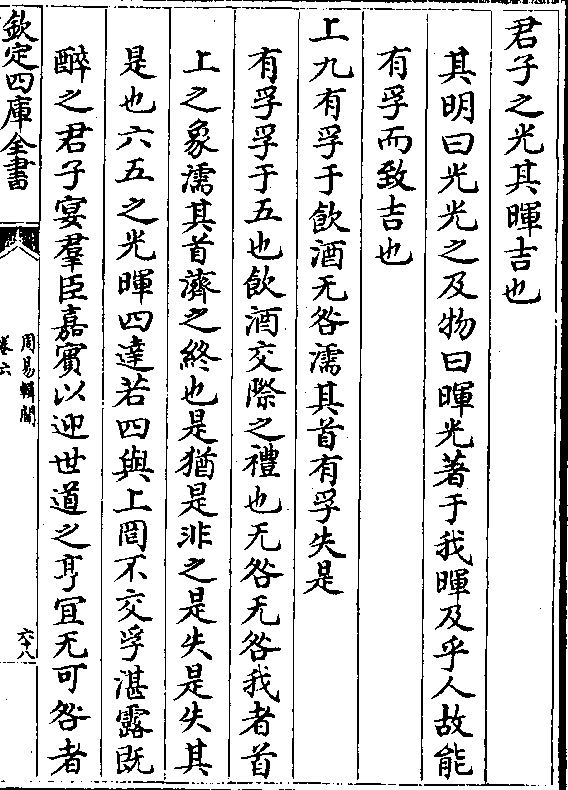 君子之光其暉吉也
其明曰光光之及物曰暉光著于我暉及乎人故能
有孚而致吉也
上九有孚于飲酒无咎濡其首有孚失是
有孚孚于五也飲酒交際之禮也无咎无咎我者首
上之象濡其首濟之終也是猶是非之是失是失其
是也六五之光暉四達若四與上罔不交孚湛露既
醉之君子宴羣臣嘉賓以迎世道之亨宜无可咎者
欽定四庫全書
周易輯聞
卷六
六十八